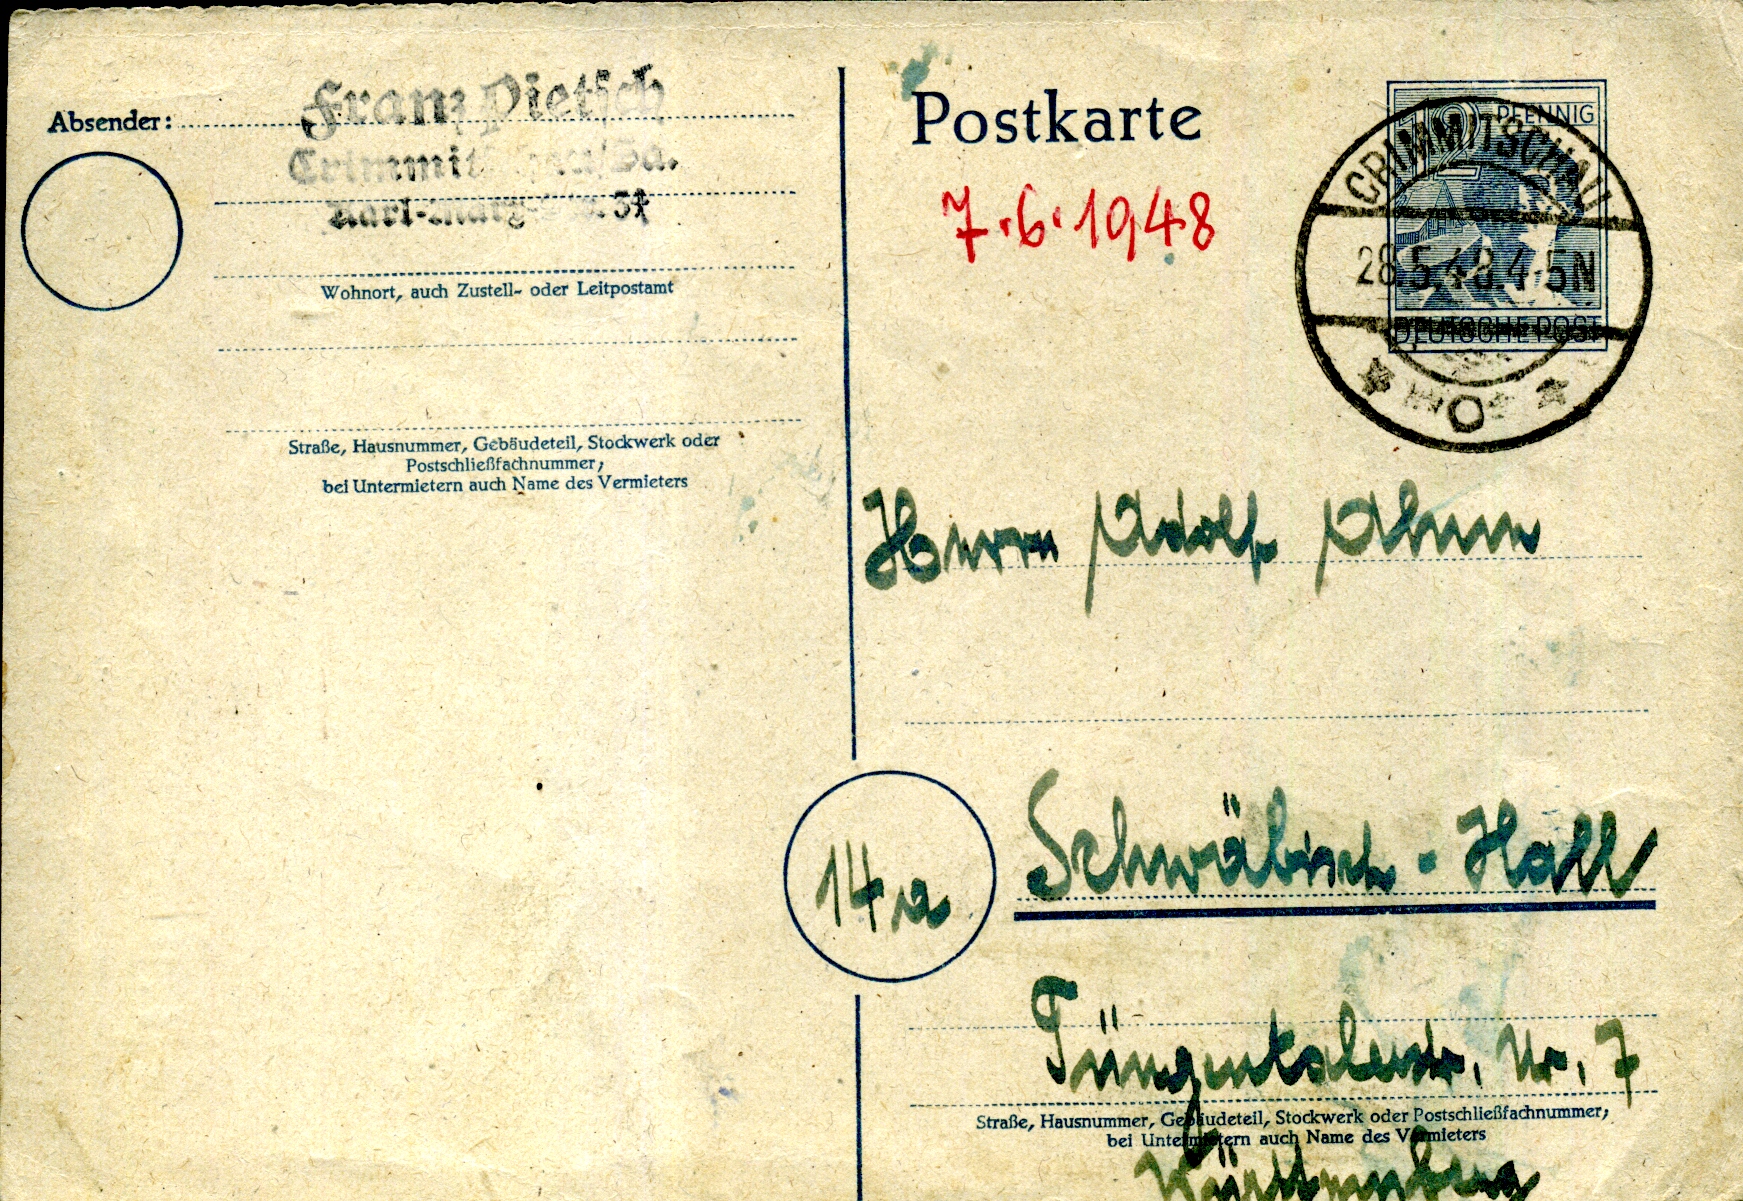 Absender:
Franz Pietsch
Karl-Marx- 34
Wohnort, auch Zustell- oder Leitpostamt
Straße, Hausnummer, Gebäudeteil, Stockwerk oder
Postschließfachnummer;
bei Untermietern auch Name des Vermieters
Postkarte
7.6.1948
12 PFENNIG
DEUTSCHE POST
CRIMMITSCHAU
28.5.48.4-5N
Herrn Adolf
14a
Schwäbisch-Hall
Nr. 7
Straße, Hausnummer, Gebäudeteil, Stockwerk oder Postschließfachnummer;
bei Untermietern auch Name des Vermieters
Württemberg